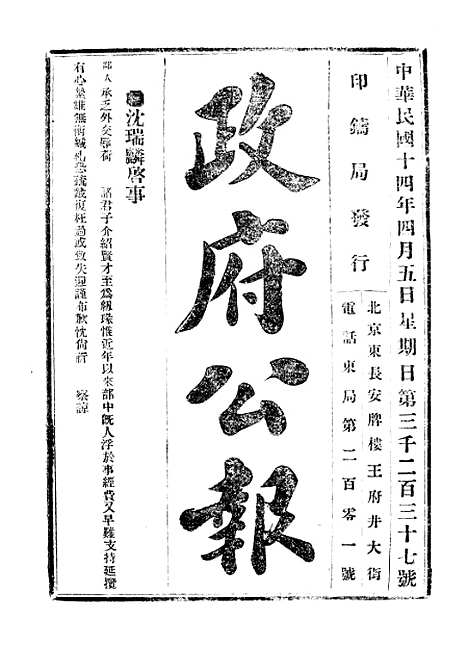 中華民國十四年四月五日星期日第三千二百三十七號
印鑄局發行
北京東長安牌樓王府井大街
電話東局第二百零一號
政府公報
沈瑞麟啓事
鄙人承乏外交辱荷 諸君子介紹賢才至爲紉琭惟近年以來部中旣人浮於事經費又早難支持延攬
有心 無 復枉過或致失迎謹布歉忱尙祈 察諒